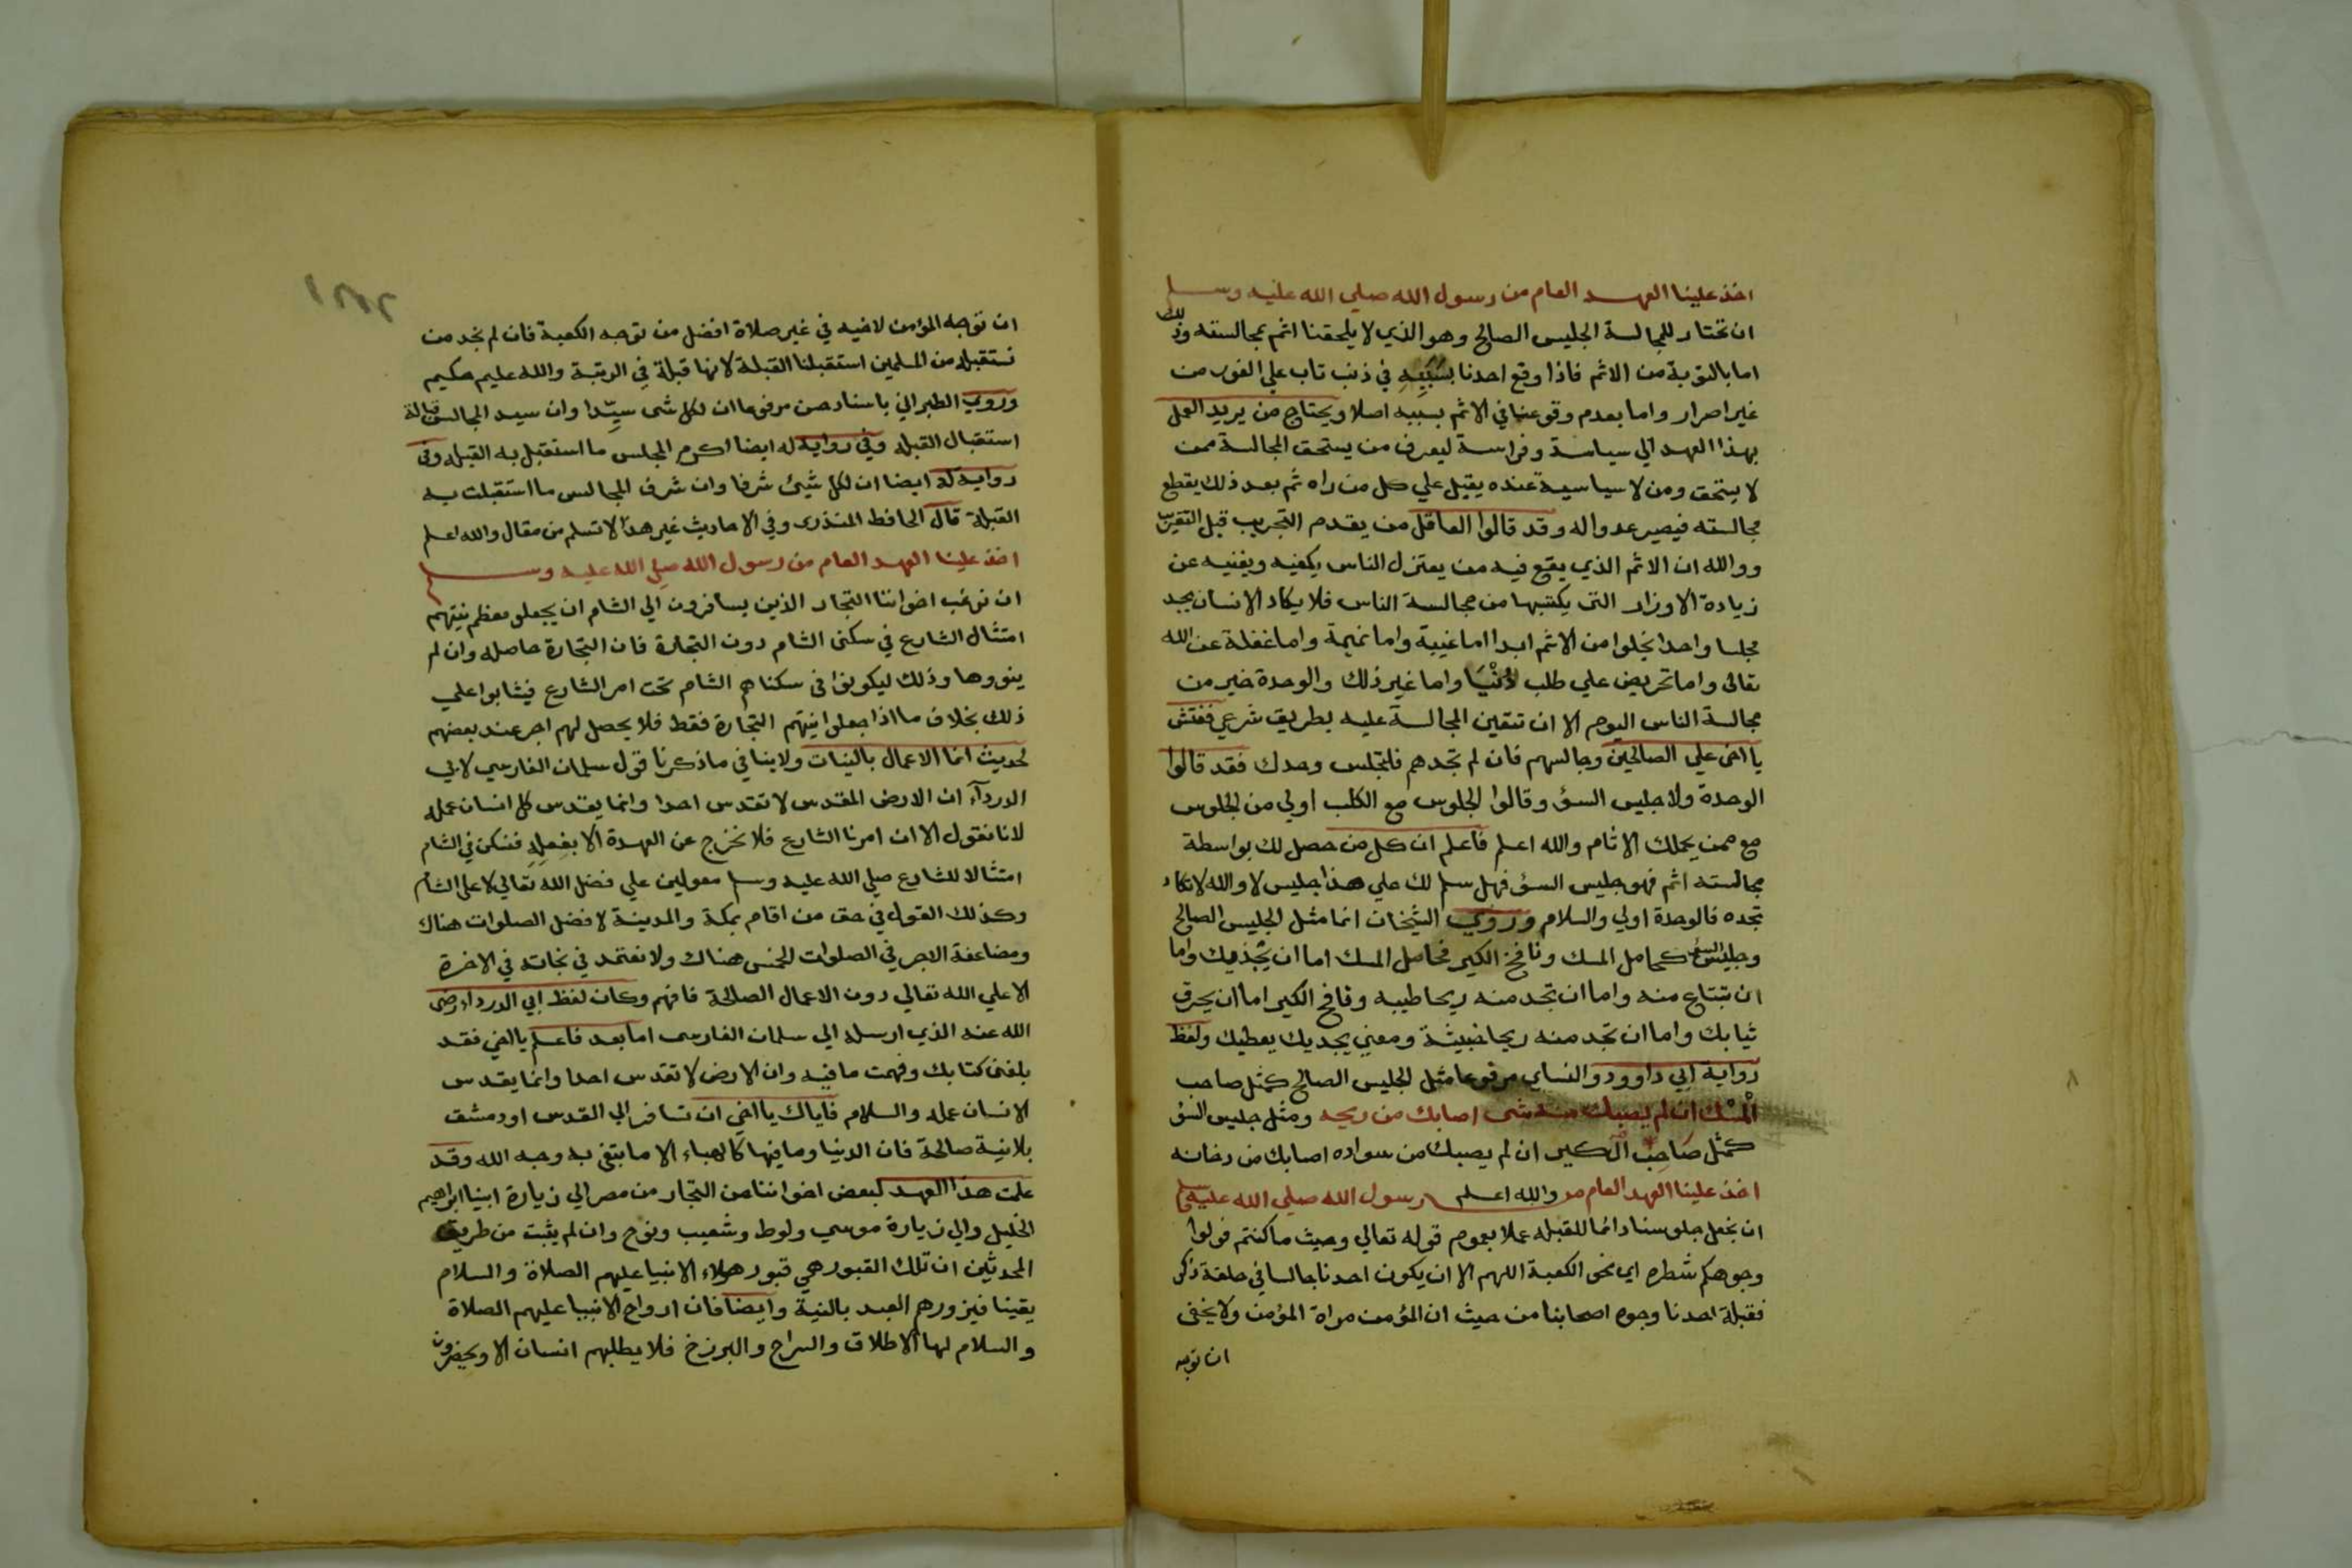 اخذ علينا العهد العام من رسول الله صلي الله عليه وسلم
ان نختار للمجالسة الجليس الصالح وهو الذي لا يلحقنا اثم بمجالسته وذلك
اما بالتوبة من الاثم فاذا وقع احدنا بسببه في ذنب تاب علي الفور من
غير اصرار واما بعدم وقوعنا في الاثم بسببه اصلا ويحتاج من يريد العمل
بهذا العهد الي سياسة وفراسة ليعرف من يستحق المجالسة ممن
لا يستحق ومن لا سياسية عنده يقبل علي كل من راه ثم بعد ذلك يقطع
مجالسته فيصير عدوا له وقد قالوا العاقل من يقدم التجريب قبل التقريب
ووالله ان الاثم الذي يقع فيه من يعتزل الناس يكفيه ويغنيه عن
زيادة الاوزار التي يكتبها من مجالسة الناس فلا يكاد الانسان يجد
مجلسا واحدا يخلوا من الاثم ابدا اما غيبة واما نميمة واما غفلة عن الله
تعالى واما تحريض علي طلب الدنيا واما غير ذلك والوحدة خير من
مجالسة الناس اليوم الا ان تتعين المجالسة عليه بطريق شرعي ففتش
يا اخى علي الصالحين وجالسهم فان لم تجدهم فلتجلس وحدك فقد قالوا
الوحدة ولا جليس السؤ وقالوا الجلوس مع الكلب اولي من الجلوس
مع من يحملك الاثام والله اعلم فاعلم ان كل من حصل لك بواسطة
مجالسته اثم فهو جليس السؤ فهل سلم لك علي هذا جليس لا والله لا تكاد
تجده فالوحدة اولي والسلام وروي الشيخان انما مثل الجليس الصالح
وجليس السؤ كحامل المسك ونافخ الكير فحامل المسك اما ان يجذيك واما
ان تبتاع منه واما ان تجد منه ريحا طيبه ونافخ الكير اما ان يحرق
ثيابك واما ان تجد منه ريحا خبيثة ومعني يجديك يعطيك ولفظ
رواية ابي داوود والنساي مرفوعا مثل الجليس الصالح كمثل صاحب
المسك ان لم يصبك منه شى اصابك من ريحه ومثل جليس السؤ
كمثل صاحب الكير ان لم يصبك من سواده اصابك من دخانه
اخذ علينا العهد العام من والله اعلم رسول الله صلي الله عليه وسلم
ان نجعل جلوسنا دائما للقبلة عملا بعموم قوله تعالي وحيث ما كنتم فولوا
وجوهكم شطره اي نحو الكعبة اللهم الا ان يكون احدنا جالسا في حلقة ذكر
فقبلة احدنا وجوه اصحابنا من حيث ان المؤمن مراة المؤمن ولا يخفى
ان توجه
ان توجه المؤمن لاخيه في غير صلاة افضل من توجه الكعبة فان لم نجد من
نستقبله من المسلمين استقبلنا القبلة لانها قبلة في الرتبة والله عليم حكيم
وروي الطبراني باسناد حسن مرفوعا ان لكل شى سيّدا وان سيد المجالس قبالة
استقبال القبله وفي رواية له ايضا اكرم المجلس ما استقبل به القبله وفي
رواية له ايضا ان لكل شيئ شرفا وان شرف المجالس ما استقبلت به
القبلة قال الحافظ المنذرى وفي الاحاديث غير هذا لا تسلم من مقال والله اعلم
اخذ علينا العهد العام من رسول الله صلي الله عليه وسلم
ان نرغب اخواننا التجار الذين يسافرون الي الشام ان يجعلو معظم نيتهم
امتثال الشارع في سكنى الشام دون التجارة فان التجارة حاصله وان لم
ينووها وذلك ليكونوا في سكناهم الشام تحت امر الشارع فيثابوا علي
ذلك بخلاف ما اذا جعلوا نيتهم التجارة فقط فلا يحصل لهم اجر عند بعضهم
لحديث انما الاعمال بالنيات ولا ينافي ما ذكرنا قول سلمان الفارسي لابي
الدردآء ان الارض المقدس لا تقدس احدا وانما يقدس كل انسان عمله
لانا نقول الا ان امرنا الشارع فلا نخرج عن العهدة الا بفعله فنسكن في الشام
امتثالا للشارع صلي الله عليه وسلم معولين علي فضل الله تعالي لا على الشام
وكذلك القول في حق من اقام بمكة والمدينة لافضل الصلوات هناك
ومضاعفة الاجر في الصلوات الخمس هناك ولا نعتمد في نجاته في الاخرة
الا علي الله تعالي دون الاعمال الصالحة فافهم وكان لفظ ابي الدرداء رضى
الله عنه الذي ارسله الي سلمان الفارسى اما بعد فاعلم يا اخي فقد
بلغني كتابك وفهمت ما فيه وان الارض لا تقدس احدا وانما يقدس
الانسان عمله والسلام فاياك يا اخي ان تسافر الي القدس او دمشق
بلا نية صالحة فان الدنيا وما فيها كالهباء الا ما ابتغى به وجه الله وقد
علمت هذا العهد لبعض اخواننا من التجار من مصر الي زيارة ابينا ابراهيم
الخليل والي زيارة موسي ولوط وشعيب ونوح وان لم يثبت من طريق
المحدثين ان تلك القبور هي قبور هولاء الانبيا عليهم الصلاة والسلام
يقينا فيزورهم العبد بالنية وايضا فان ارواح الانبيا عليهم الصلاة
والسلام لها الاطلاق والسراح والبرزخ فلا يطلبهم انسان الا ويحضرون